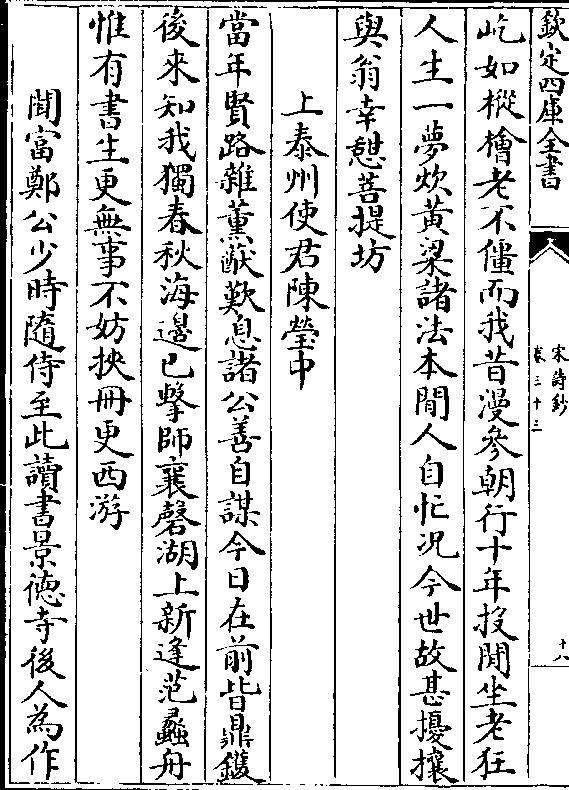 欽定四庫全書
宋詩鈔
卷三十三
十八
屹如樅檜老不僵而我昔漫參朝行十年投閒坐老狂
人生一夢炊黃粱諸法本閒人自忙况今世故甚擾攘
與翁幸憩菩提坊
上泰州使君陳瑩中
當年賢路雜薰蕕歎息諸公善自謀今日在前皆鼎鑊
後來知我獨春秋海邊已擊師襄磬湖上新逢范蠡舟
惟有書生更無事不妨挾冊更西游
聞富鄭公少時隨侍至此讀書景德寺後人為作